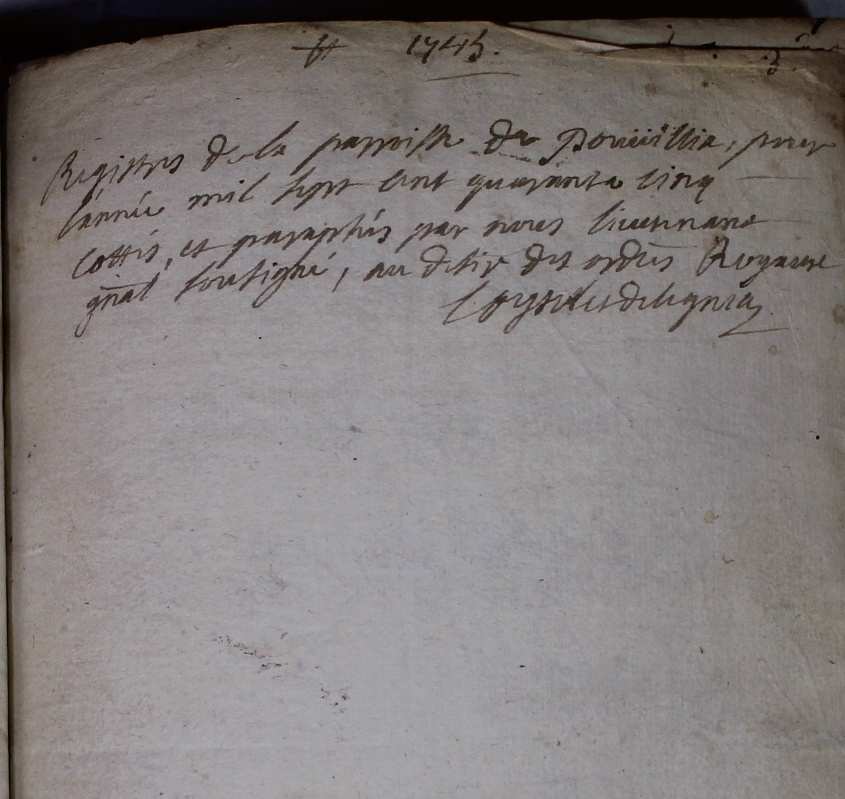 1745.
Registres de la parroisse de pouuillia, pour
l'année mil sept cent quarante cinq
cottés, et paraphés par nous lieutenant
gñal soussigné, au desir des ordres Royaux